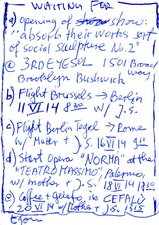 WAITING FOR
a) opening of show:
"absorb their works sort
of social sculpture No. 2"
② 3RD EYE SOL 1501 Broadway
Brooklyn Bushwick
b) Flight Brussels → Berlin
11 VI 14 8:20 w/ J.S.
c) Flight Berlin Tegel → Rome
w/ Mutter + J. 16 VI 14
d) Start Opera "NORMA" at the
"TEATRO MASSIMO", Palermo,
w/ mother + J.S. 18 VI 14
e) Coffee + gelato, in CEFALÙ
20 VI 14 w/ Mother + J.S.